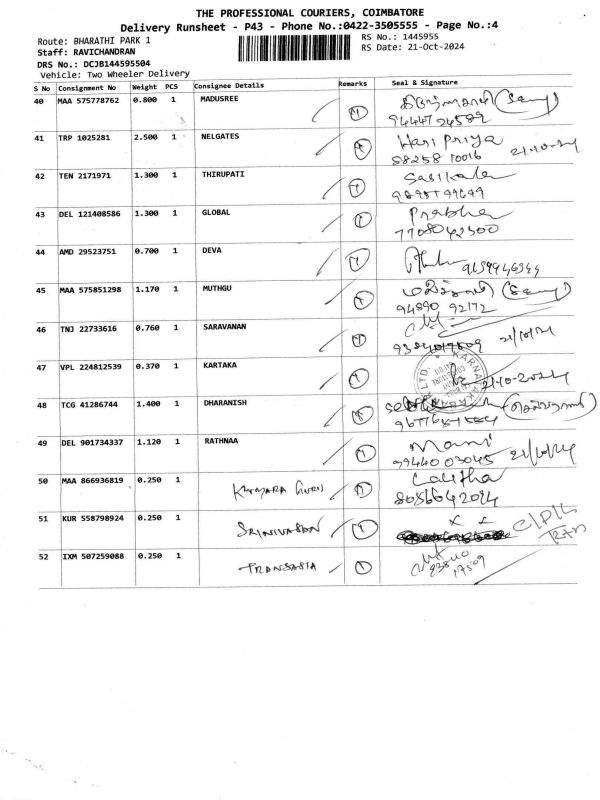 THE PROFESSIONAL COURIERS, COIMBATORE
Delivery Runsheet - P43 - Phone No.:0422-3505555 - Page No.:4
Route: BHARATHI PARK 1 RS No.: 1445955
Staff: RAVICHANDRAN RS Date: 21-Oct-2024
DRS No.: DCJB144595504
Vehicle: Two Wheeler Delivery
S No Consignment No Weight PCS Consignee Details Remarks Seal & Signature
40 MAA 575778762 0.800 1 MADUSREE
41 TRP 1025281 2.500 1 NELGATES Hari Priya
88258 10016 21-10-24
42 TEN 2171971 1.300 1 THIRUPATI Sasikala
43 DEL 121408586 1.300 1 GLOBAL Prabha
7708042500
44 AMD 29523751 0.700 1 DEVA
45 MAA 575851298 1.170 1 MUTHGU
94890 92172
46 TNJ 22733616 0.760 1 SARAVANAN 21/10/24
47 VPL 224812539 0.370 1 KARTAKA 21-10-2024
48 TCG 41286744 1.400 1 DHARANISH
49 DEL 901734337 1.120 1 RATHNAA Mani
9944003045 21/10/24
50 MAA 866936819 0.250 1 KUMARA GURU Lalitha
8056642094
51 KUR 558798924 0.250 1 SRINIVASAN
52 IXM 507259088 0.250 1 TRANSASIA